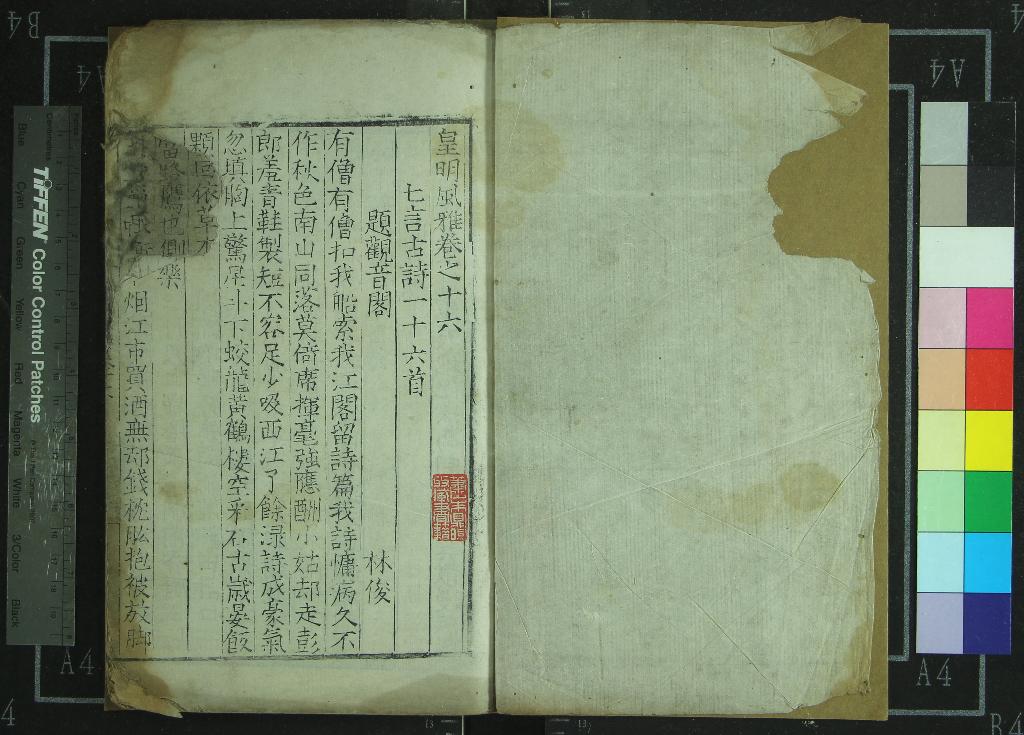 皇明風雅卷之十六
七言古詩一十六首
題觀音閣 林俊
有僧有僧扣我船索我江閣留詩篇我詩慵病久不
作秋色南山同落莫倚席揮毫強應酬小姑却走彭
郎羞青鞋製短不容足少吸西江了餘渌詩成豪氣
忽填胸上驚星斗下蛟龍黃鶴樓空釆石古歲晏飯
顆同依草木
當路鷹也側樂
烟江市貰酒無却錢枕肱抱被放脚
TIFFEN Color Control Patches
Blue Cyan Green Yellow Red Magenta White 3/Color Black
Centimetres
A4
A4
A4
A4
B4
B4